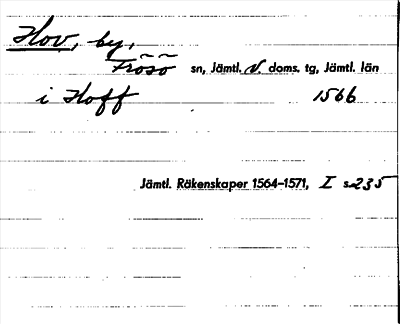 Hov, by,
Frösö sn, Jämtl. V. doms. tg, Jämtl. län
i Hoff 1566
Jämtl. Räkenskaper 1564–1571, I s. 235